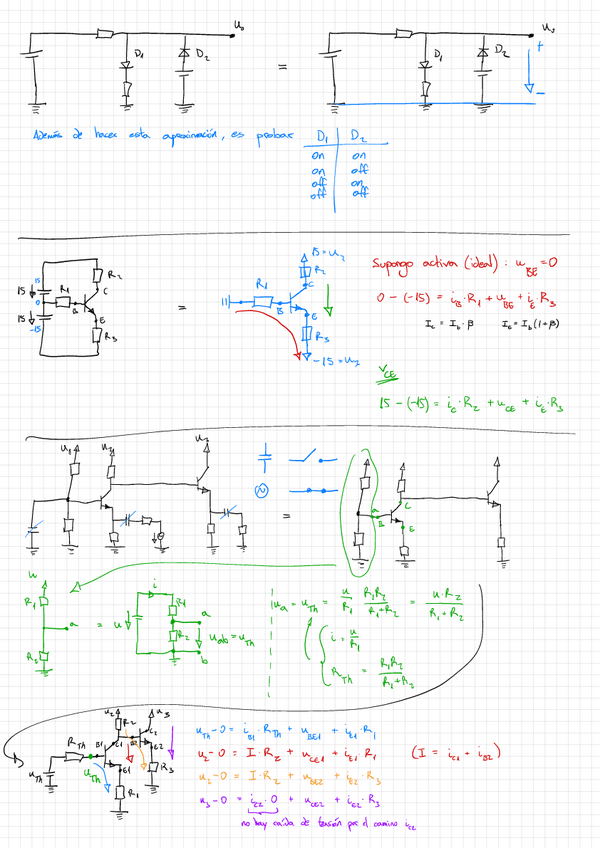 u₀ u₀
D₁ D₂ = D₁ D₂ + −
Además de hacer esta aproximación, es probar D₁ D₂
on on
on off
off on
off off
15 15 0 15 −15 R₁ R₂ R₃ B C E
= 15 = u₂ R₁ R₂ R₃ B C E −15 = u₂
Supongo activa (ideal) : u_BE = 0
0 − (−15) = i_B · R₁ + u_BE + i_E · R₃
I_c = I_b · β I_E = I_b (1+β)
V_CE
15 − (−15) = i_C · R₂ + u_CE + i_E · R₃
u₁ u₂ u₃
= a B C E
u R₁ a R₂ = u i R₁ a R₂ b u_ab = u_TH
u_a = u_TH = u/R₁ R₁R₂/(R₁+R₂) = u·R₂/(R₁+R₂)
i = u/R₁
R_TH = R₁R₂/(R₁+R₂)
u₂ u₃ R₂ C2 R_TH B1 C1 E2 u_TH u_TH E1 R₃ R₁
u_TH − 0 = i_B1 · R_TH + u_BE1 + i_E1 · R₁
u₂ − 0 = I · R₂ + u_CE1 + i_E1 · R₁ (I = i_C1 + i_B2)
u₂ − 0 = I · R₂ + u_BE2 + i_E2 · R₃
u₃ − 0 = i_C2 · 0 + u_CE2 + i_E2 · R₃
no hay caída de tensión por el camino i_C2